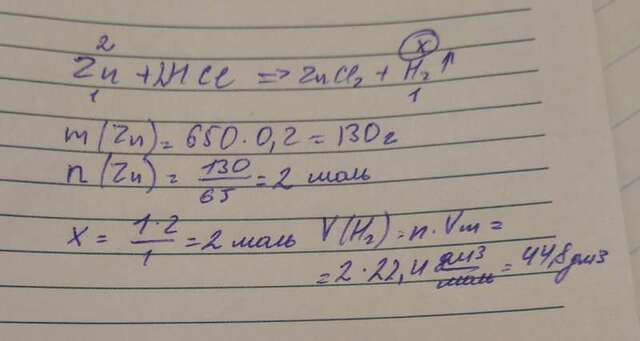 2 x
Zn + 2HCl => ZnCl₂ + H₂↑
1 1
m(Zn) = 650 · 0,2 = 130г
n(Zn) = 130/65 = 2 моль
x = 1·2/1 = 2 моль V(H₂) = n · Vm =
= 2 · 22,4 дм3/моль = 44,8 дм3